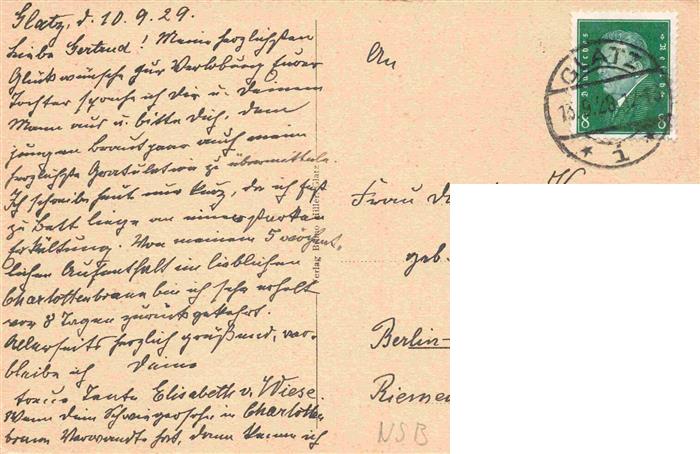 Glatz, d. 10.9.29.
Liebe Gertrud! Meine herzlichsten
Glückwünsche zur Verlobung Eurer
Tochter spreche ich dir u. Deinem
Mann aus u. bitte Dich, dem
jungen Brautpaar auch meine
herzlichste Gratulation zu übermitteln.
Ich schreibe heut nur kurz, da ich fest
zu Bett liege an einer starken
Erkältung. Von meinem 5 wöchent-
lichen Aufenthalt im lieblichen
Charlottenbrunn bin ich sehr erholt
vor 8 Tagen zurückgekehrt.
Allerseits herzlich grüßend, ver-
bleibe ich Deine
treue Tante Elisabeth v. Wiese.
Wenn dein Schwiegersohn in Charlotten-
brunn Verwandte hat, dann kenne ich
Verlag Glatz
An
Frau
geb.
Berlin-
Rieme
NSB
Deutsches Reich
8 8
GLATZ
* 1 *